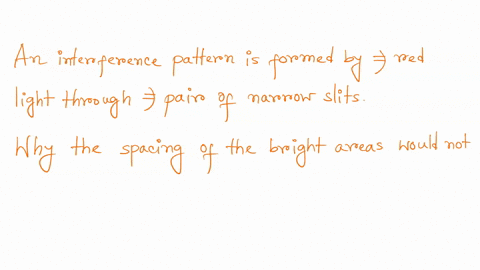 An interference pattern is formed by red
light through pair of narrow slits.
Why the spacing of the bright areas would not